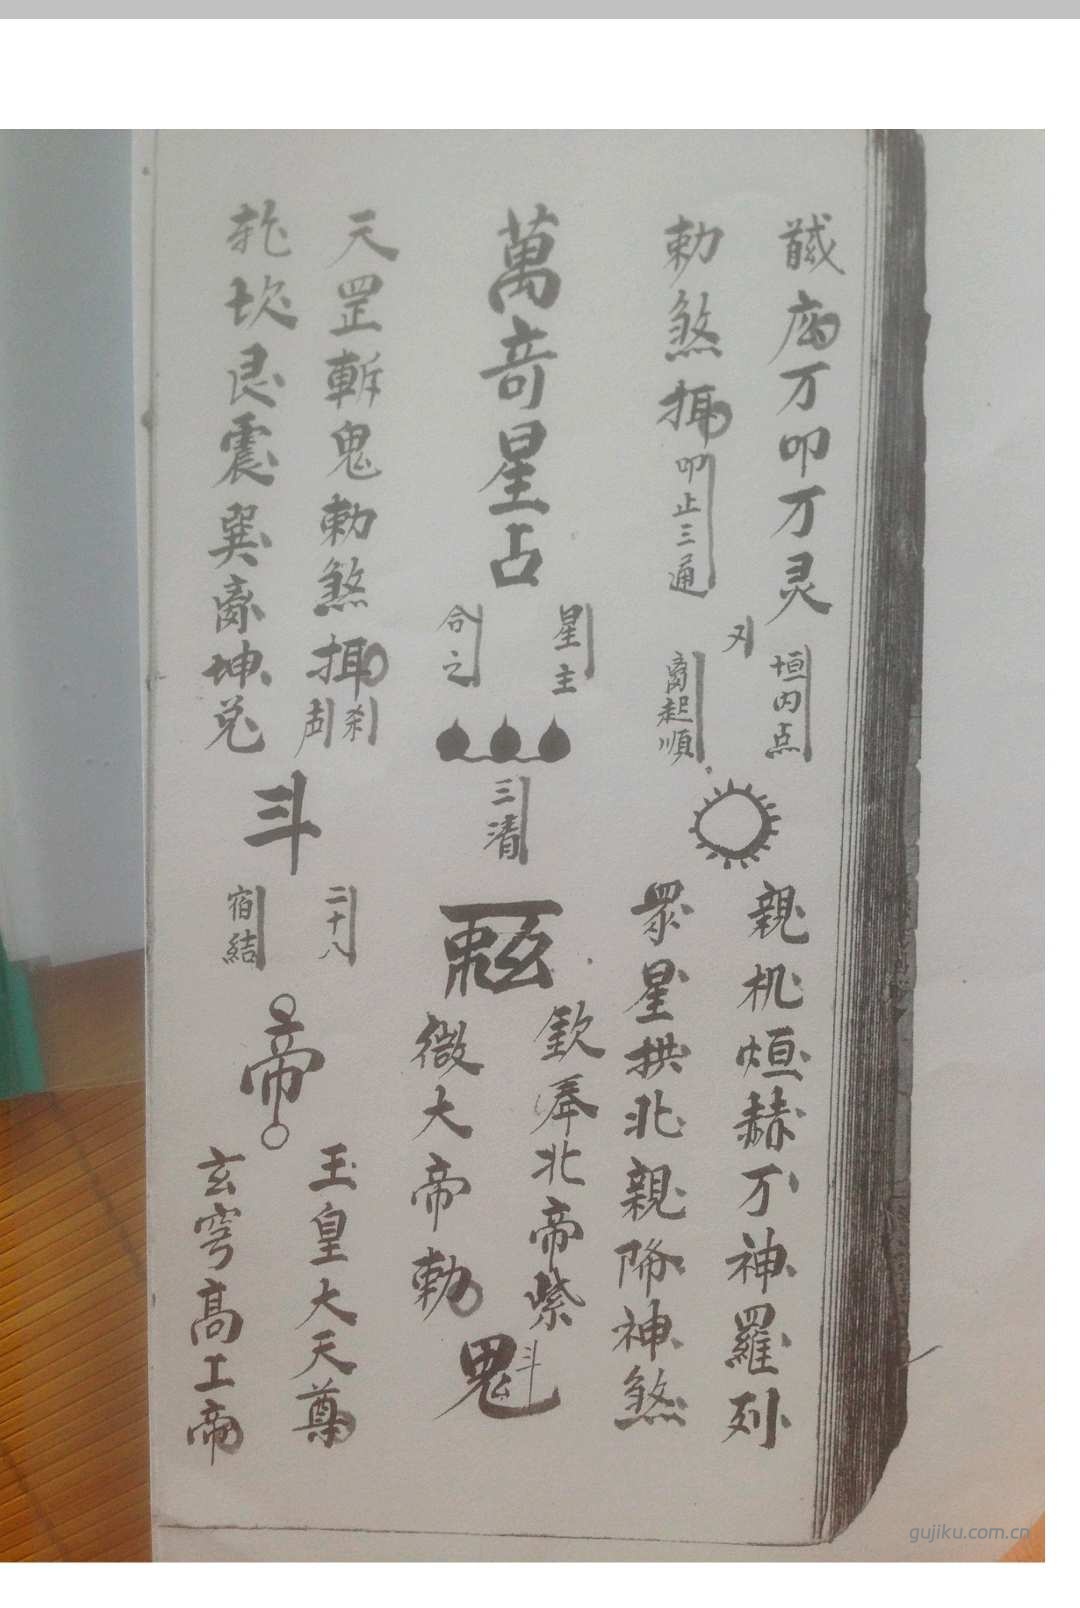 万叩万灵
垣内点
勅煞
叩止三通
起順
親机烜赫万神羅列
衆星拱北親降神煞
萬奇星占
星主
合之
三清
欽奉北帝紫
微大帝勅
魁
天罡斬鬼勅煞
刹
乾坎艮震巽离坤兌
斗
二十八
宿結
帝
玉皇大天尊
玄穹高上帝
gujiku.com.cn